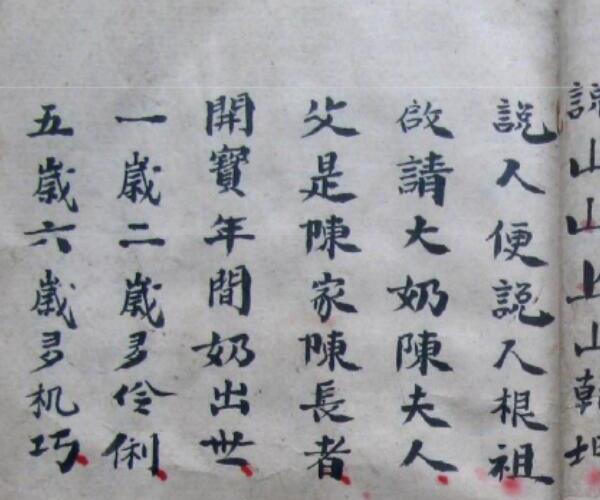 説山山上山朝
説人便説人根祖
啟請大奶陳夫人
父是陳家陳長者
開寶年間奶出世
一歳二歳多伶俐
五歳六歳多机巧